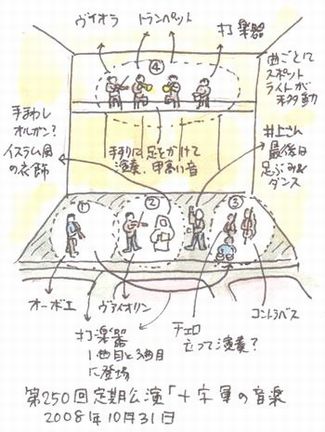 ヴィオラ
トランペット
打楽器
曲ごとに
スポット
ライトが
移動
④
手まわし
オルガン?
イスラム風
の衣飾
手すりに足をかけて
演奏。甲高い音
井上さん
最後は
足ぶみ&
ダンス
①
②
③
オーボエ
ヴァイオリン
打楽器
1曲目と3曲目
に登場
チェロ
立って演奏?
コントラバス
第250回定期公演「十字軍の音楽
2008年10月31日